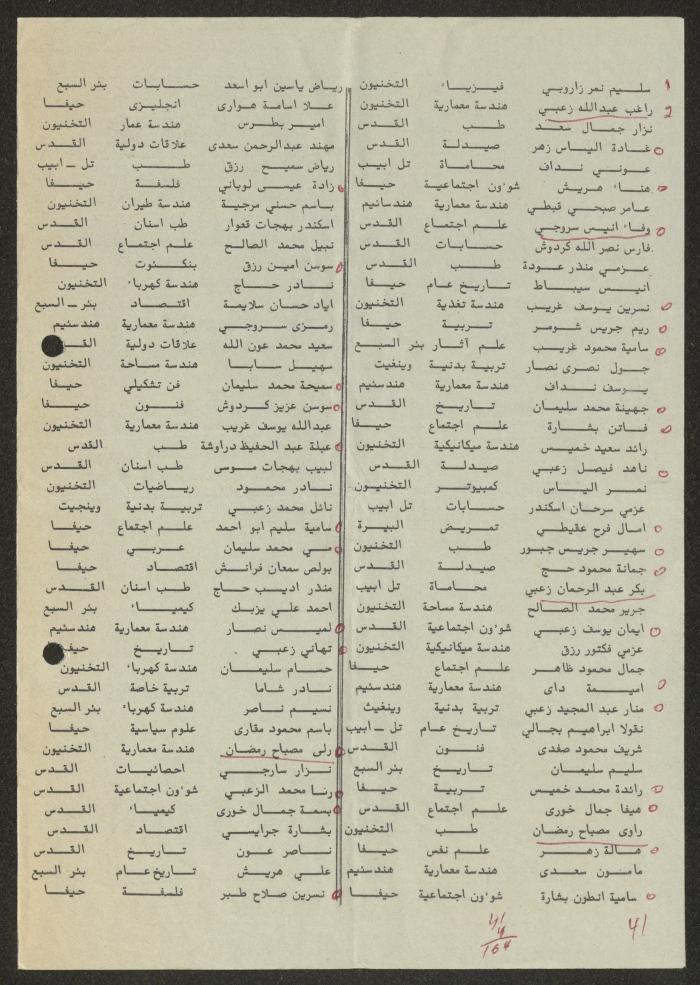 1 سليم نمر زاروبي فيزياء التخنيون
2 راغب عبدالله زعبي هندسة معمارية التخنيون
نزار جمال سعد طب القدس
غادة الياس زهر صيدلة القدس
عوني نداف محاماة تل ابيب
هناء هريش شوءون اجتماعية حيفا
عامر صبحي قبطي هندسة معمارية هندسانيم
وفاء انيس سروجي علم اجتماع القدس
فارس نصر الله كردوش حسابات القدس
عزمي منذر عودة طب القدس
انيس سيباط تاريخ عام حيفا
نسرين يوسف غريب هندسة تغذية التخنيون
ريم جريس شومر تربية حيفا
سامية محمود غريب علم آثار بئر السبع
جول نصرى نصار تربية بدنية وينغيت
يوسف نداف هندسة معمارية هندسئيم
جهينة محمد سليمان تاريخ القدس
فاتن بشارة علم اجتماع حيفا
رائد سعيد خميس هندسة ميكانيكية التخنيون
ناهد فيصل زعبي صيدلة القدس
نمر الياس كمبيوتر التخنيون
عزمي سرحان اسكندر حسابات تل ابيب
امال فرح عقيطي تمريض البيرة
سهير جريس جبور طب التخنيون
جمانة محمود حج صيدلة القدس
بكر عبد الرحمان زعبي محاماة تل ابيب
جرير محمد الصالح هندسة مساحة التخنيون
ايمان يوسف زعبي شوءون اجتماعية القدس
عزمي فكتور رزق هندسة ميكانيكية التخنيون
جمال محمود ظاهر علم اجتماع حيفا
اميمة داى هندسة معمارية هندسئيم
منار عبد المجيد زعبي تربية بدنية وينغيث
نقولا ابراهيم بجالي تاريخ عام تل ـ ابيب
شريف محمود صفدى فنون القدس
سليم سليمان تاريخ بئر السبع
رائدة محمد خميس تربية حيفا
هيفا جمال خورى علم اجتماع القدس
راوى مصباح رمضان طب التخنيون
هالة زهر علم نفس حيفا
مامون سعدى هندسة معمارية هندسئيم
سامية انطون بشارة شوءون اجتماعية حيفا
41
رياض ياسين ابو اسعد حسابات بئر السبع
علا اسامة هوارى انجليزى حيفا
امير بطرس هندسة عمار التخنيون
مهند عبدالرحمن سعدى علاقات دولية القدس
رياض سميح رزق طب تل ـ ابيب
زادة عيسى لوباني فلسفة حيفا
باسم حسني مرجية هندسة طيران التخنيون
اسكندر بهجات قعوار طب اسنان القدس
نبيل محمد الصالح علم اجتماع القدس
سوسن امين رزق بنكنوت حيفا
نادر حاج هندسة كهرباء التخنيون
اياد حسان سلايمة اقتصاد بئر ـ السبع
رمزى سروجي هندسة معمارية هندسئيم
سعيد محمد عون الله علاقات دولية
سهيل سابا هندسة مساحة التخنيون
سميحة محمد سليمان فن تشكيلي حيفا
سوسن عزيز كردوش فنون حيفا
عبدالله يوسف غريب هندسة معمارية التخنيون
عبلة عبد الحفيظ دراوشة طب القدس
لبيب بهجات موسى طب اسنان القدس
نادر محمود رياضيات التخنيون
نائل محمد زعبي تربية بدنية وينجيت
سامية سليم ابو احمد علم اجتماع حيفا
مي محمد سليمان عربي حيفا
بولص سمعان فرانش اقتصاد حيفا
منذر اديب حاج طب اسنان القدس
احمد علي يزبك كيمياء بئر السبع
لميس نصار هندسة معمارية هندسئيم
تهاني زعبي تاريخ
حسام سليمان هندسة كهرباء التخنيون
نادر شاما تربية خاصة القدس
نسيم ناصر هندسة كهرباء بئر السبع
باسم محمود مقارى علوم سياسية حيفا
رلى مصباح رمضان هندسة معمارية التخنيون
نزار سارجي احصائيات القدس
رنا محمد الزعبي شوءون اجتماعية القدس
بسمة جمال خورى كيمياء القدس
بشارة جرايسي اقتصاد القدس
ناصر عون تاريخ القدس
علي هريش تاريخ عام بئر السبع
نسرين صلاح طبر فلسفة حيفا
41
4
164